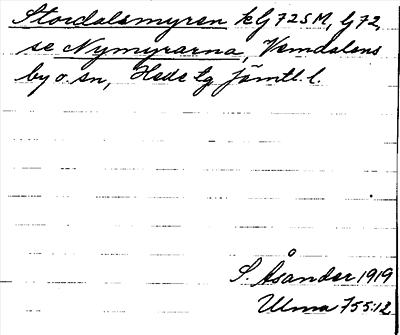 Stordalsmyren kG 725M, G 72,
se Nymyrarna, Vemdalens
by o. sn, Hede tg Jämtl. l.
S. Åsander 1919
Ulma 755:12